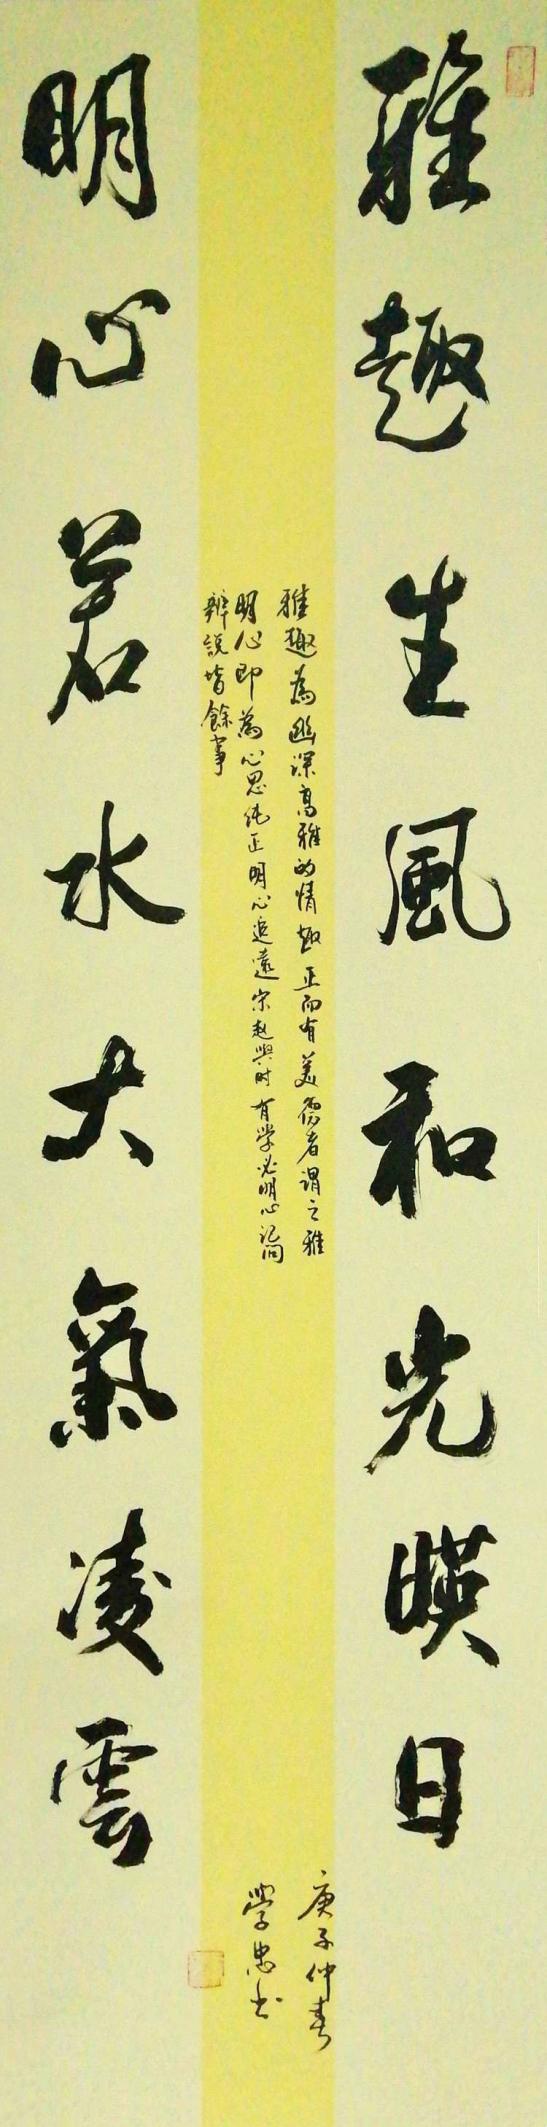 雅趣生風和光暎日
明心若水大氣凌雲
雅趣為幽深高雅的情趣正而有美德者謂之雅
明心即為心思純正明心追遠宋趙與时有学必明心記问
辨說皆餘事
庚子仲春
學忠书